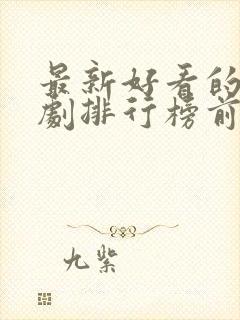 最新好看的
劇排行榜前
九紫